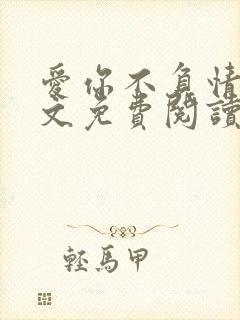 愛你不負情
文免費閱讀
輕馬甲